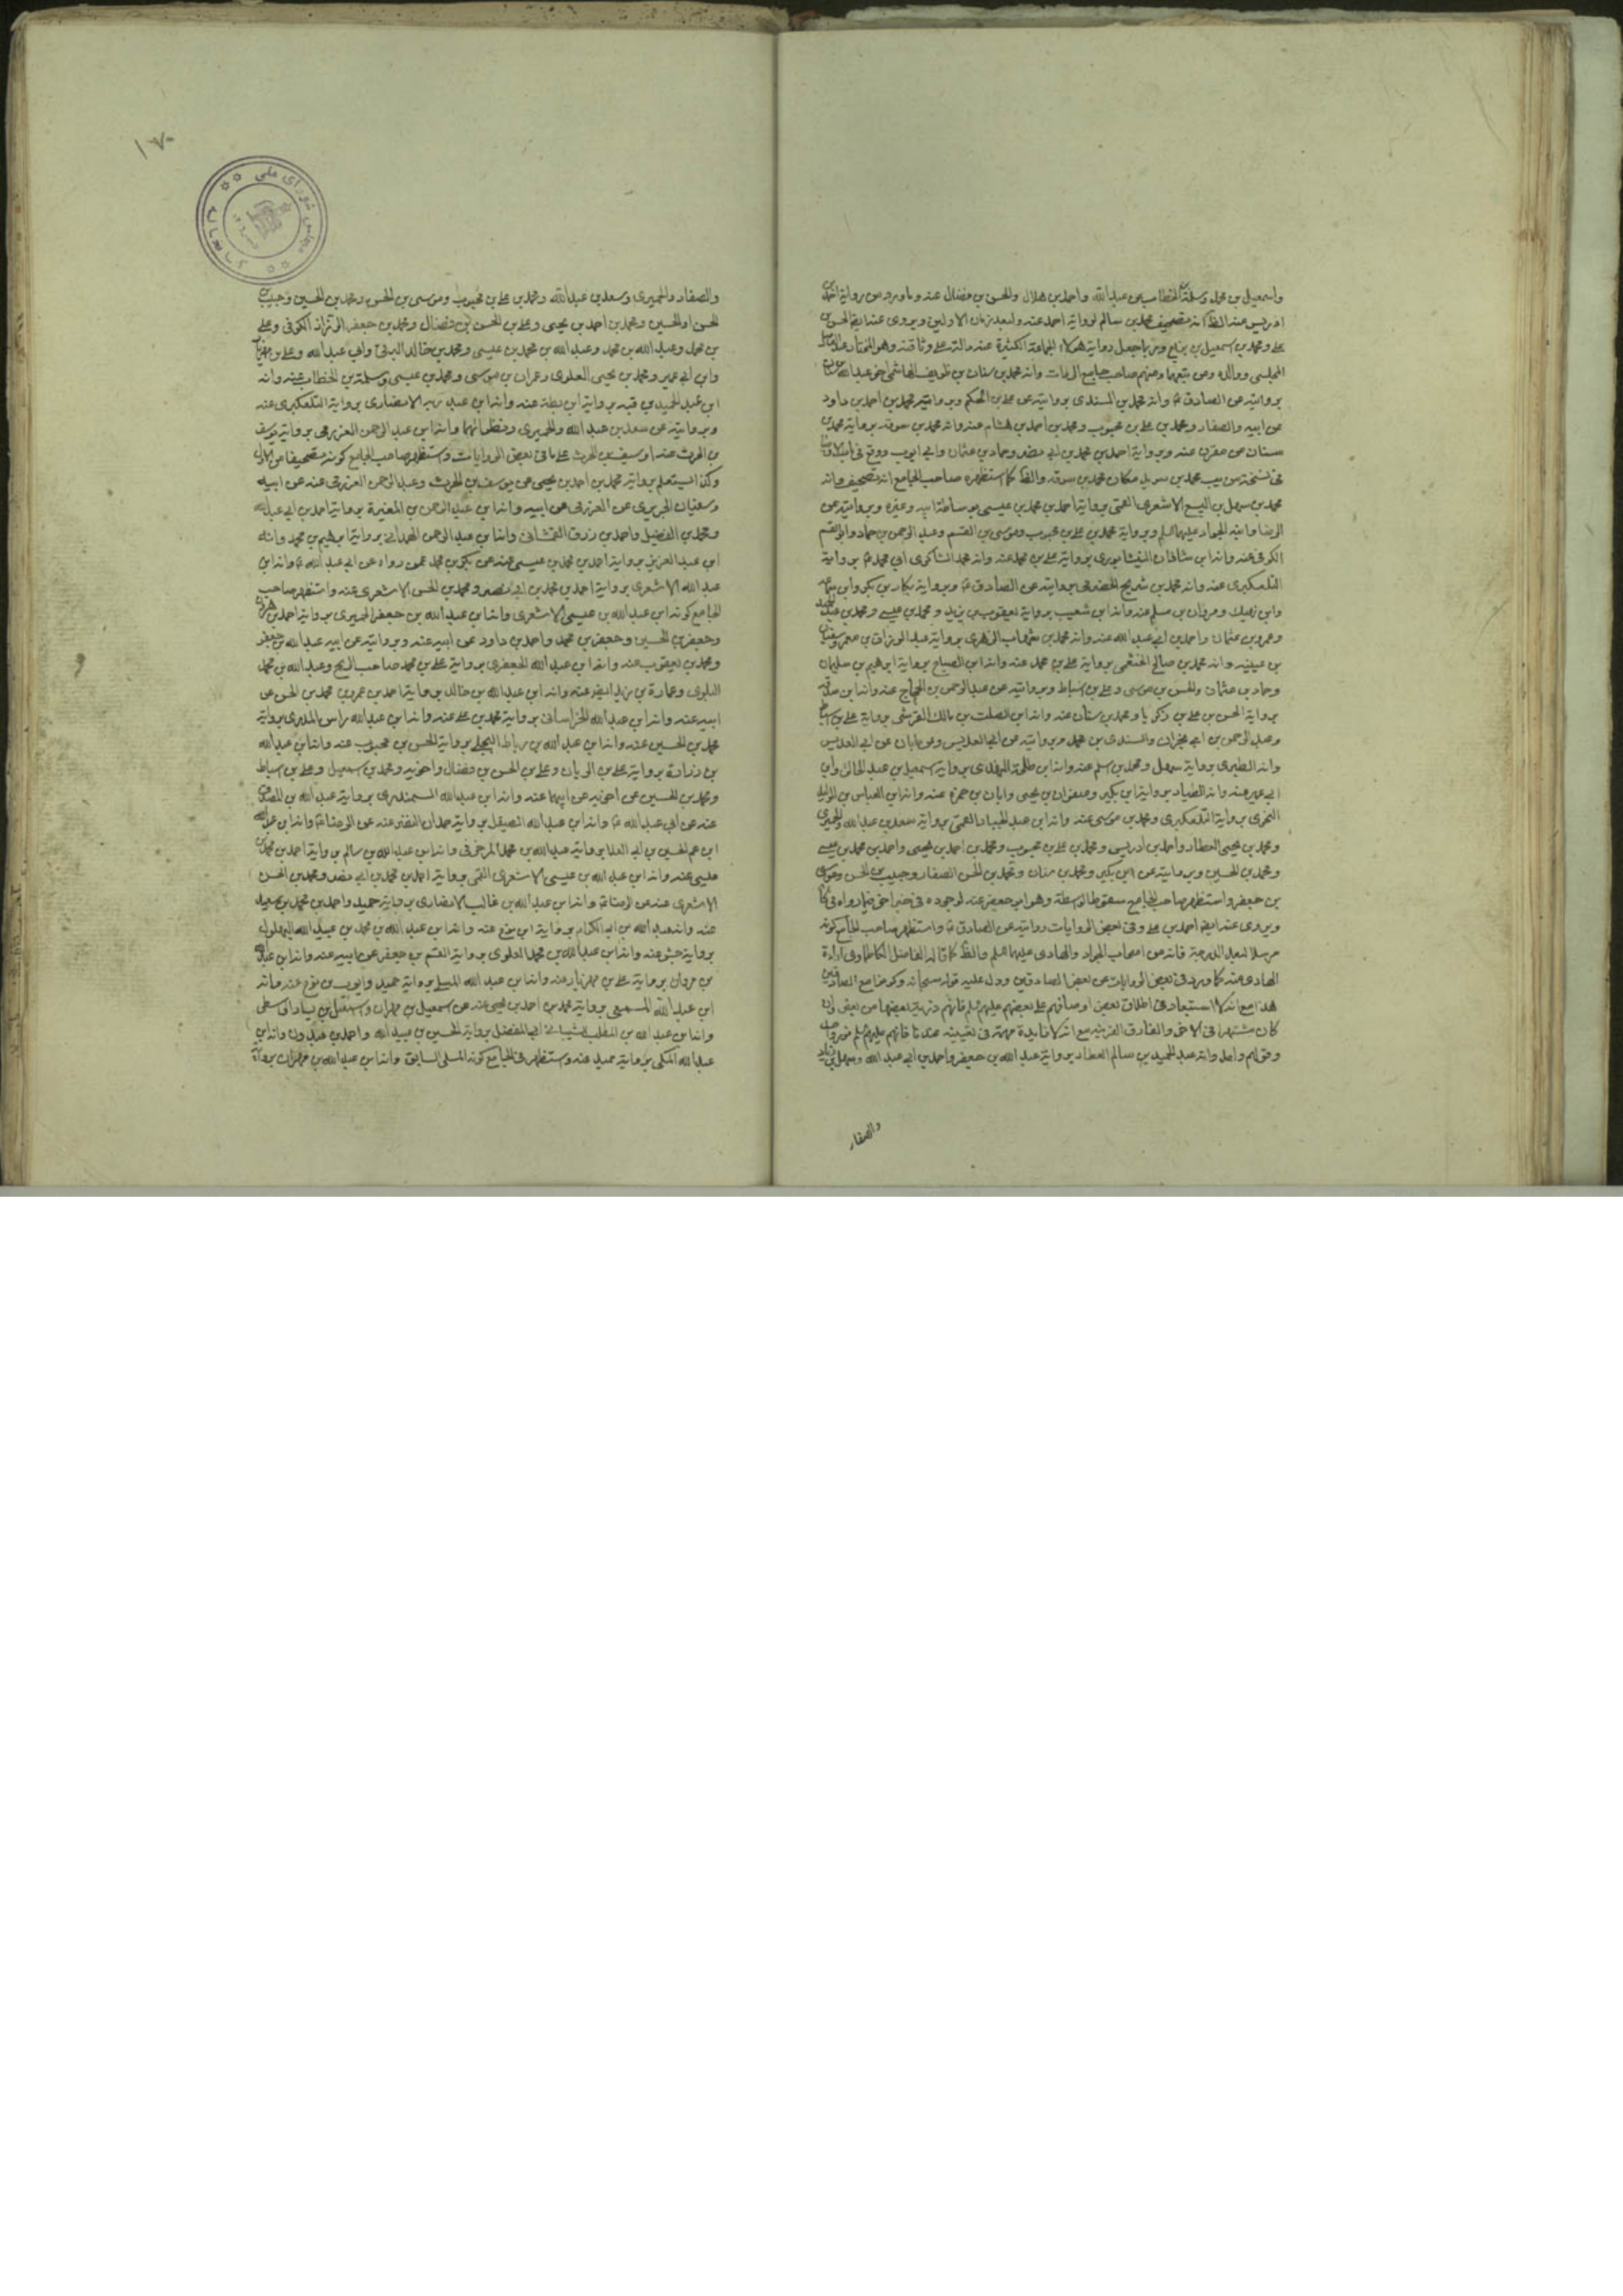 واسمعيل بن محمد وسلمة بن الخطاب عن عبد الله واحمد بن هلال والحسن بن فضال عنه وما ورد من رواية احمد بن
ادريس عنه الظ انه تصحيف محمد بن سالم لرواية احمد عنه ولبعد زمان الاولين ويروى عنه ايضا الحسن بن
علي ومحمد بن اسمعيل بن بزيع وربما جعل رواية هؤلاء الجماعة الكثيرة عنه دالة على وثاقته وهو المختار
المجلسي ووالده ومن تبعهما ومنهم صاحب جامع الرواة وانه محمد بن سنان بن ظريف الهاشمي اخو عبد الله بن سنان
بروايته عن الصادق ع وانه محمد بن السندى بروايته عن علي بن الحكم وبرواية محمد بن احمد بن داود
عن ابيه والصفار ومحمد بن علي بن محبوب ومحمد بن احمد بن هشام عنه وانه محمد بن سوقه برواية محمد بن
سنان عن مقرن عنه وبرواية احمد بن محمد بن ابي نصر وحماد بن عثمان وابي ايوب ووقع في
في نسخة من يب محمد بن سويد مكان محمد بن سوقه والظ كما استظهره صاحب الجامع انه تصحيف وانه
محمد بن سهل بن اليسع الاشعرى القمى برواية احمد بن محمد بن عيسى بوساطة ابيه وغيره وبروايته عن
الرضا وابنه الجواد عليهما السلم وبرواية محمد بن علي بن محبوب وموسى بن القسم وعبد الرحمن بن حماد وابو القسم
الكوفى عنه وانه ابن شاذان النيشابورى برواية علي بن محمد عنه وانه محمد الشاكرى ابي محمد ع برواية
التلعكبرى عنه وانه محمد بن شريح الحضرمى بروايته عن الصادق ع وبرواية بكار بن بكر وابن
وابن نهيك ومروان بن مسلم عنه وانه ابن شعيب برواية يعقوب بن يزيد ومحمد بن عيسى ومحمد بن
وعمرو بن عثمان واحمد بن ابي عبد الله عنه وانه محمد بن شهاب الزهرى برواية عبد الرزاق بن معمر وسفيان
بن عيينه وانه محمد بن صالح الخثعمى برواية علي بن محمد عنه وانه ابن الصباح برواية ابرهيم بن سليمان
وحماد بن عثمان والحسن بن موسى وعلي بن اسباط وبروايته عن عبد الرحمن بن الحجاج عنه وانه ابن صدقة
برواية الحسن بن علي بن زكريا ومحمد بن سنان عنه وانه ابن الصلت بن مالك القرشى برواية علي بن اسباط
وعبد الرحمن بن ابي نجران والسندى بن محمد وبروايته عن ابي العديس وعن ابان عن ابي العديس
وانه الطبرى برواية سهل ومحمد بن اسلم عنه وانه ابن طلحة النهدى برواية اسمعيل بن عبد الخالق وابن
ابي عمير عنه وانه الطيار برواية ابن بكير وصفوان بن يحيى وابان بن حمزة عنه وانه ابن العباس بن الوليد
النحوى برواية التلعكبرى ومحمد بن موسى عنه وانه ابن عبد الجبار القمى برواية سعد بن عبد الله والحميرى
ومحمد بن يحيى العطار واحمد بن ادريس ومحمد بن علي بن محبوب ومحمد بن احمد بن يحيى واحمد بن محمد بن عيسى
ومحمد بن الحسين وبروايته عن ابن بكير ومحمد بن سنان ومحمد بن الحسن الصفار وحبيب بن الحسن وموسى
بن جعفر واستظهر صاحب الجامع سقوط الواسطة وهو ابو جعفر عنه لوجوده في خبر اخر فيما رواه في كا
ويروى عنه ايضا احمد بن علي وفي بعض الروايات روايته عن الصادق ع واستظهر صاحب الجامع كونه
مرسلا لبعد الدرجة فانه من اصحاب الجواد والهادى عليهما السلم والظ كما قاله الفاضل الكاظمى ارادة
الهادى عنه كما ورد في بعض الروايات عن بعض الصادقين ودل عليه قوله سبحانه وكونوا مع الصادقين
هذا مع انه لا استبعاد في اطلاق بعض اوصافهم على بعضهم عليهم السلم فانهم ذرية بعضها من بعض وان
كان مشتهرا في الاخر والفارق القرينة مع انه لا فايدة مهمة في تعيينه عندنا فانهم عليهم السلم نور واحد
وقولهم واحد وانه عبد الحميد بن سالم العطار برواية عبد الله بن جعفر واحمد بن ابي عبد الله وسهل بن زياد
والصفار
١٧٠
كتابخانه مجلس شوراى ملى
والصفار والحميرى وسعد بن عبد الله ومحمد بن علي بن محبوب وموسى بن الحسن ومحمد بن الحسين وحبيب بن
الحسن او الحسين ومحمد بن احمد بن يحيى وعلي بن الحسن بن فضال ومحمد بن جعفر الرزاز الكوفى وعلي
بن محمد وعبد الله بن محمد وعبد الله بن محمد بن عيسى ومحمد بن خالد البرقى وابي عبد الله وعلي بن مهزيار
وابن ابي عمير ومحمد بن يحيى العلوى وعمران بن موسى ومحمد بن عيسى وسلمة بن الخطاب عنه وانه
ابن عبد الحميد بن قبه برواية ابن بطة عنه وانه ابن عبد ربه الانصارى برواية التلعكبرى عنه
وبروايته عن سعد بن عبد الله والحميرى وحفظ انهما وانه ابن عبد الرحمن العزرمى برواية يوسف
بن الحرث عنه او سيف بن الحرث على ما في بعض الروايات واستظهر صاحب الجامع كونه تصحيفا من الاول
وكذا السيتعلم برواية محمد بن احمد بن يحيى عن يوسف بن الحرث وعبد الرحمن العزرمى عنه عن ابيه
وسفيان الجريرى عن العزرمى عن ابيه وانه ابن عبد الرحمن بن المغيرة برواية احمد بن ابي عبد الله
ومحمد بن الفضيل واحمد بن رزق الغمشانى وانه ابن عبد الرحمن الهمدانى برواية ابرهيم بن محمد وانه
ابن عبد العزيز برواية احمد بن محمد بن عيسى عنه عن بكر بن محمد عمن رواه عن ابي عبد الله ع وانه ابن
عبد الله الاشعرى برواية احمد بن محمد بن ابي نصر ومحمد بن الحسن الاشعرى عنه واستظهر صاحب
الجامع كونه ابن عبد الله بن عيسى الاشعرى وانه ابن عبد الله بن جعفر الحميرى برواية احمد بن هرون
وجعفر بن الحسين وجعفر بن محمد واحمد بن داود عن ابيه عنه وبروايته عن ابيه عبد الله بن جعفر
ومحمد بن يعقوب عنه وانه ابن عبد الله الجعفرى برواية علي بن محمد صاحب الزنج وعبد الله بن محمد
البلوى وعمارة بن زيد ايضا عنه وانه ابن عبد الله بن خالد برواية احمد بن عمرو بن محمد بن الحسن عن
ابيه عنه وانه ابن عبد الله الخراسانى برواية محمد بن علي عنه وانه ابن عبد الله راس المدرى برواية
محمد بن الحسين عنه وانه ابن عبد الله بن رباط البجلى برواية الحسن بن محبوب عنه وانه ابن عبد الله
بن زرارة برواية علي بن الريان وعلي بن الحسن بن فضال واخويه ومحمد بن اسمعيل وعلي بن اسباط
ومحمد بن الحسين عن اخويه عن ابيهما عنه وانه ابن عبد الله السمندرى برواية عبد الله بن الصلت
عنه عن ابي عبد الله ع وانه ابن عبد الله الصيقل برواية حمدان النضر عنه عن الرضا ع وانه ابن عبد الله
ابن عم الحسين بن ابي العلا برواية عبد الله بن محمد المزخرف وانه ابن عبد الله بن سالم برواية احمد بن محمد بن
عيسى عنه وانه ابن عبد الله بن عيسى الاشعرى القمى برواية احمد بن محمد بن ابي نصر ومحمد بن الحسن
الاشعرى عنه عن الرضا ع وانه ابن عبد الله بن غالب الانصارى برواية حميد واحمد بن محمد بن سعيد
عنه وانه عبد الله بن ابي الكرام برواية ابن نوح عنه وانه ابن عبد الله بن محمد بن عبيد الله البهلول
برواية حبش عنه وانه ابن عبد الله بن محمد العلوى برواية القسم بن جعفر عن ابيه عنه وانه ابن عبد الله
بن مروان برواية علي بن مهزيار عنه وانه ابن عبد الله المسلى برواية حميد وايوب بن نوح عنه وانه
ابن عبد الله المسمعى برواية محمد بن احمد بن يحيى عنه عن اسمعيل بن مهران واسمعيل بن يسار الواسطى
وانه ابن عبد الله بن المطلب الشيبانى ابي المفضل برواية الحسين بن عبيد الله واحمد بن عبدون وانه ابن
عبد الله المكى برواية حميد عنه واستظهر في الجامع كونه المسلى السابق وانه ابن عبد الله بن مهران برواية